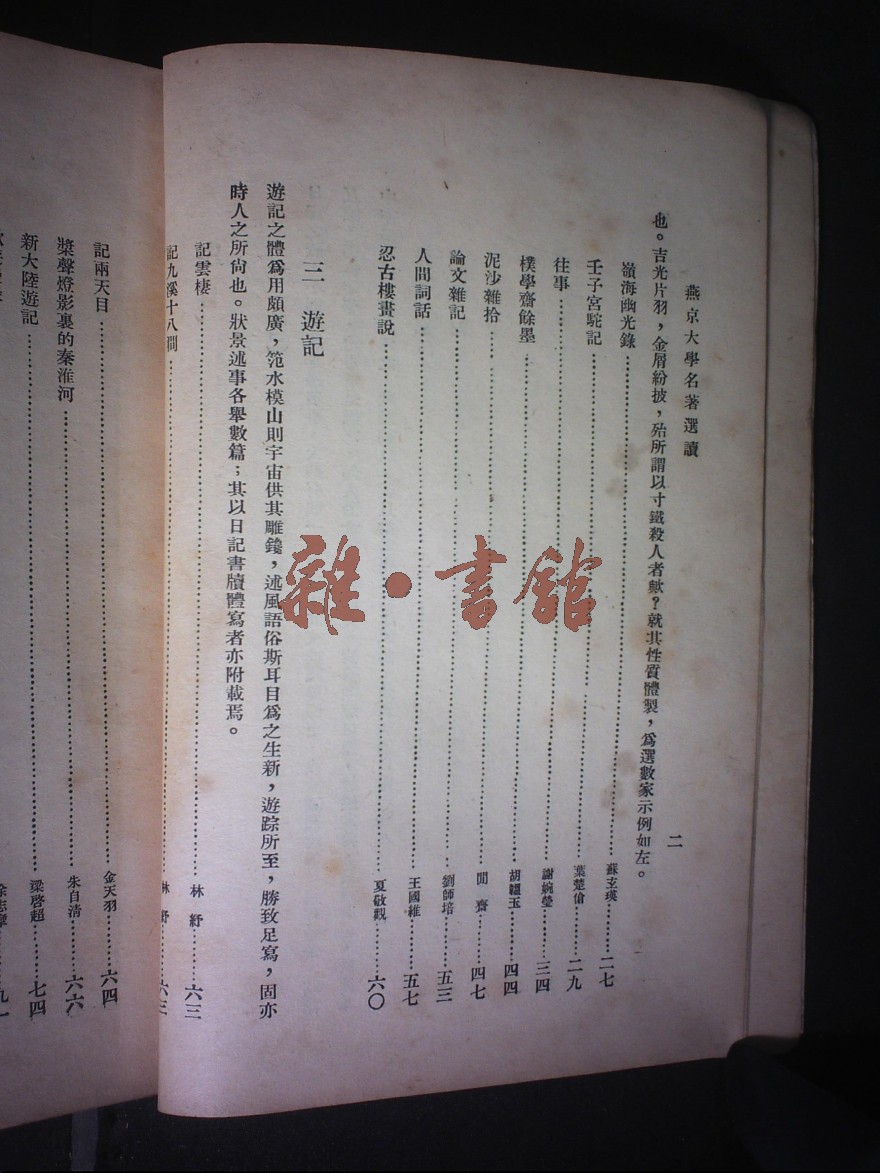 燕京大學名著選讀
二
也。吉光片羽，金屑紛披，殆所謂以寸鐵殺人者歟？就其性質體製，爲選數家示例如左。
嶺海幽光錄……蘇玄瑛……二七
壬子宮駝記……葉楚傖……二九
往事……謝婉瑩……三四
樸學齋餘墨……胡韞玉……四四
泥沙雜拾……閒齋……四七
論文雜記……劉師培……五三
人間詞話……王國維……五七
忍古樓畫說……夏敬觀……六〇
三　遊記
遊記之體爲用頗廣，范水模山則宇宙供其雕鎪，述風語俗斯耳目爲之生新，遊踪所至，勝致足寫，固亦
時人之所尙也。狀景述事各舉數篇；其以日記書牘體寫者亦附載焉。
記雲棲……林紓……六三
記九溪十八澗……林紓……六三
記兩天目……金天羽……六四
槳聲燈影裏的秦淮河……朱自淸……六六
新大陸遊記……梁啓超……七四
雜·書館